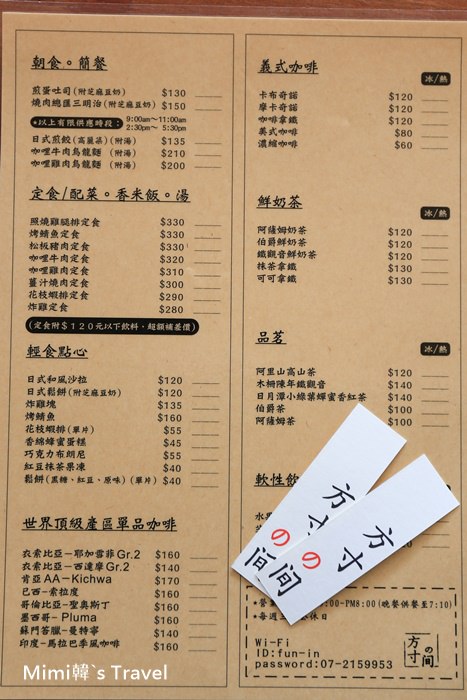 朝食。簡餐
煎蛋吐司(附芝麻豆奶) $130
燒肉總匯三明治(附芝麻豆奶) $150
*以上有限供應時段: 9:00am~11:00am
2:30pm~ 5:30pm
日式煎餃(高麗菜)(附湯) $135
咖哩牛肉烏龍麵 (附湯) $210
咖哩雞肉烏龍麵 (附湯) $200
定食/配菜。香米飯。湯
照燒雞腿排定食 $330
烤鯖魚定食 $330
松板豬肉定食 $330
咖哩牛肉定食 $320
咖哩雞肉定食 $310
薑汁燒肉定食 $300
花枝蝦排定食 $290
炸雞定食 $280
(定食附$120元以下飲料,超額補差價)
輕食點心
日式和風沙拉 $120
日式鬆餅(附芝麻豆奶) $120
炸雞塊 $135
烤鯖魚 $160
花枝蝦排(單片) $55
香綿蜂蜜蛋糕 $45
巧克力布朗尼 $55
紅豆抹茶果凍 $40
鬆餅(黑糖、紅豆、原味)(單片) $40
世界頂級產區單品咖啡
衣索比亞-耶加雪菲Gr.2 $160
衣索比亞-西達摩Gr.2 $140
肯亞AA-Kichwa $170
巴西-索拉度 $160
哥倫比亞-聖奧斯丁 $160
墨西哥- Pluma $160
蘇門答臘-曼特寧 $140
印度-馬拉巴季風咖啡 $160
義式咖啡
冰/熱
卡布奇諾 $120
摩卡奇諾 $120
咖啡拿鐵 $120
美式咖啡 $80
濃縮咖啡 $60
鮮奶茶
冰/熱
阿薩姆奶茶 $120
伯爵鮮奶茶 $120
鐵觀音鮮奶茶 $120
抹茶拿鐵 $130
可可拿鐵 $130
品茗
冰/熱
阿里山高山茶 $120
木柵陳年鐵觀音 $140
日月潭小綠葉蟬蜜香紅茶 $140
伯爵茶 $100
阿薩姆茶 $100
軟性飲
方寸の間
方寸の間
00-PM8:00(晚餐供餐至7:10)
*每週 休日
Wi-Fi
ID:fun-in
password:07-2159953
方寸の間
Mimi韓`s Travel